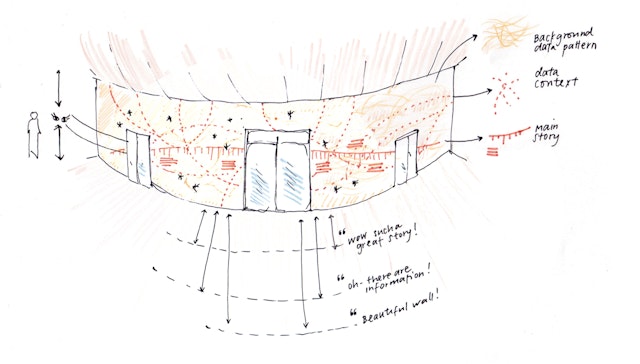 Background
data pattern
data
context
main
story
“ wow such a
great story!
“ oh- there are
information!
“ Beautiful wall!